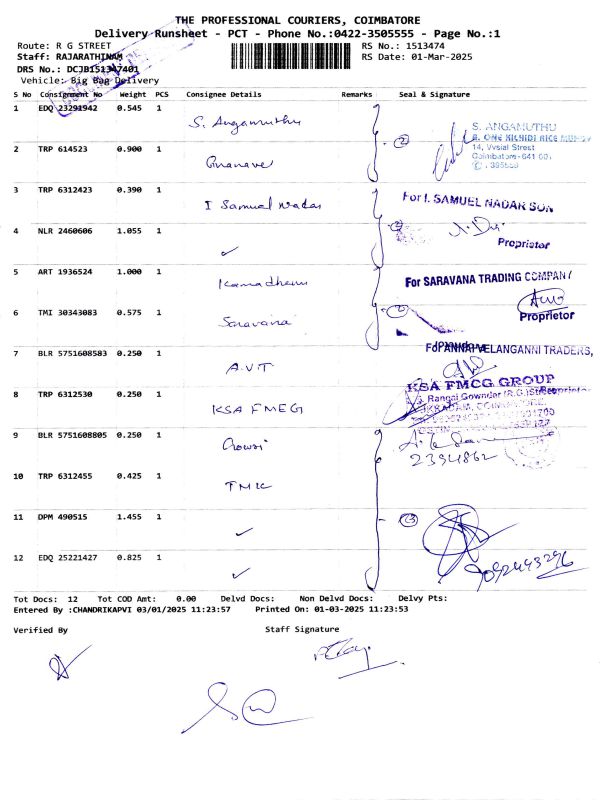 THE PROFESSIONAL COURIERS, COIMBATORE
Delivery Runsheet - PCT - Phone No.:0422-3505555 - Page No.:1
Route: R G STREET
RS No.: 1513474
Staff: RAJARATHINAM
RS Date: 01-Mar-2025
DRS No.: DCJB151347401
Vehicle: Big Bag Delivery
S No Consignment No Weight PCS Consignee Details Remarks Seal & Signature
1 EDQ 23291942 0.545 1 S. Angamuthu
S. ANGAMUTHU
14, Vysial Street
Coimbatore - 641 001
2 TRP 614523 0.900 1
3 TRP 6312423 0.390 1 I Samuel Nadar
For I. SAMUEL NADAR SON
Proprietor
4 NLR 2460606 1.055 1 ✓
5 ART 1936524 1.000 1
For SARAVANA TRADING COMPANY
Proprietor
6 TMI 30343083 0.575 1 Saravana
For ANNAI VELANGANNI TRADERS,
7 BLR 5751608583 0.250 1 A.V.T
KSA FMCG GROUP
8 TRP 6312530 0.250 1 KSA FMEG
9 BLR 5751608805 0.250 1 Gowri
2334862
10 TRP 6312455 0.425 1 FMIC
11 DPM 490515 1.455 1 ✓
12 EDQ 25221427 0.825 1 ✓
9092493296
Tot Docs: 12 Tot COD Amt: 0.00 Delvd Docs: Non Delvd Docs: Delvy Pts:
Entered By :CHANDRIKAPVI 03/01/2025 11:23:57 Printed On: 01-03-2025 11:23:53
Verified By Staff Signature